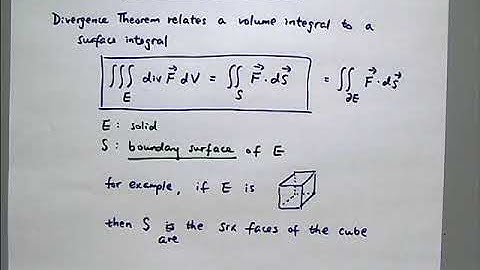 Divergence Theorem relates a volume integral to a
surface integral
∭_E div F⃗ dV = ∬_S F⃗ · dS⃗ = ∬_∂E F⃗ · dS⃗
E : solid
S : boundary surface of E
for example, if E is
then S is the six faces of the cube
are